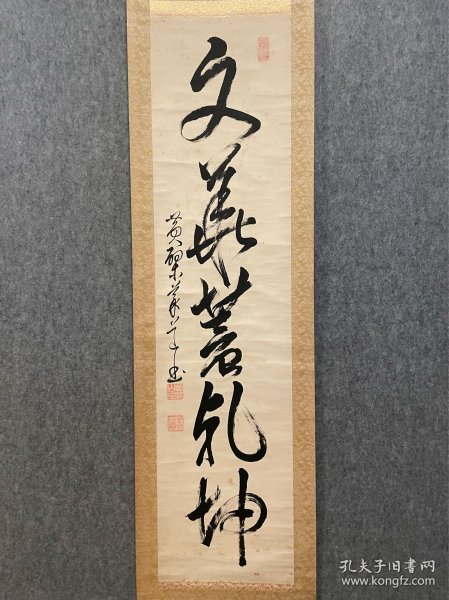 文華著乾坤
黄檗書
孔夫子旧书网
www.kongfz.com